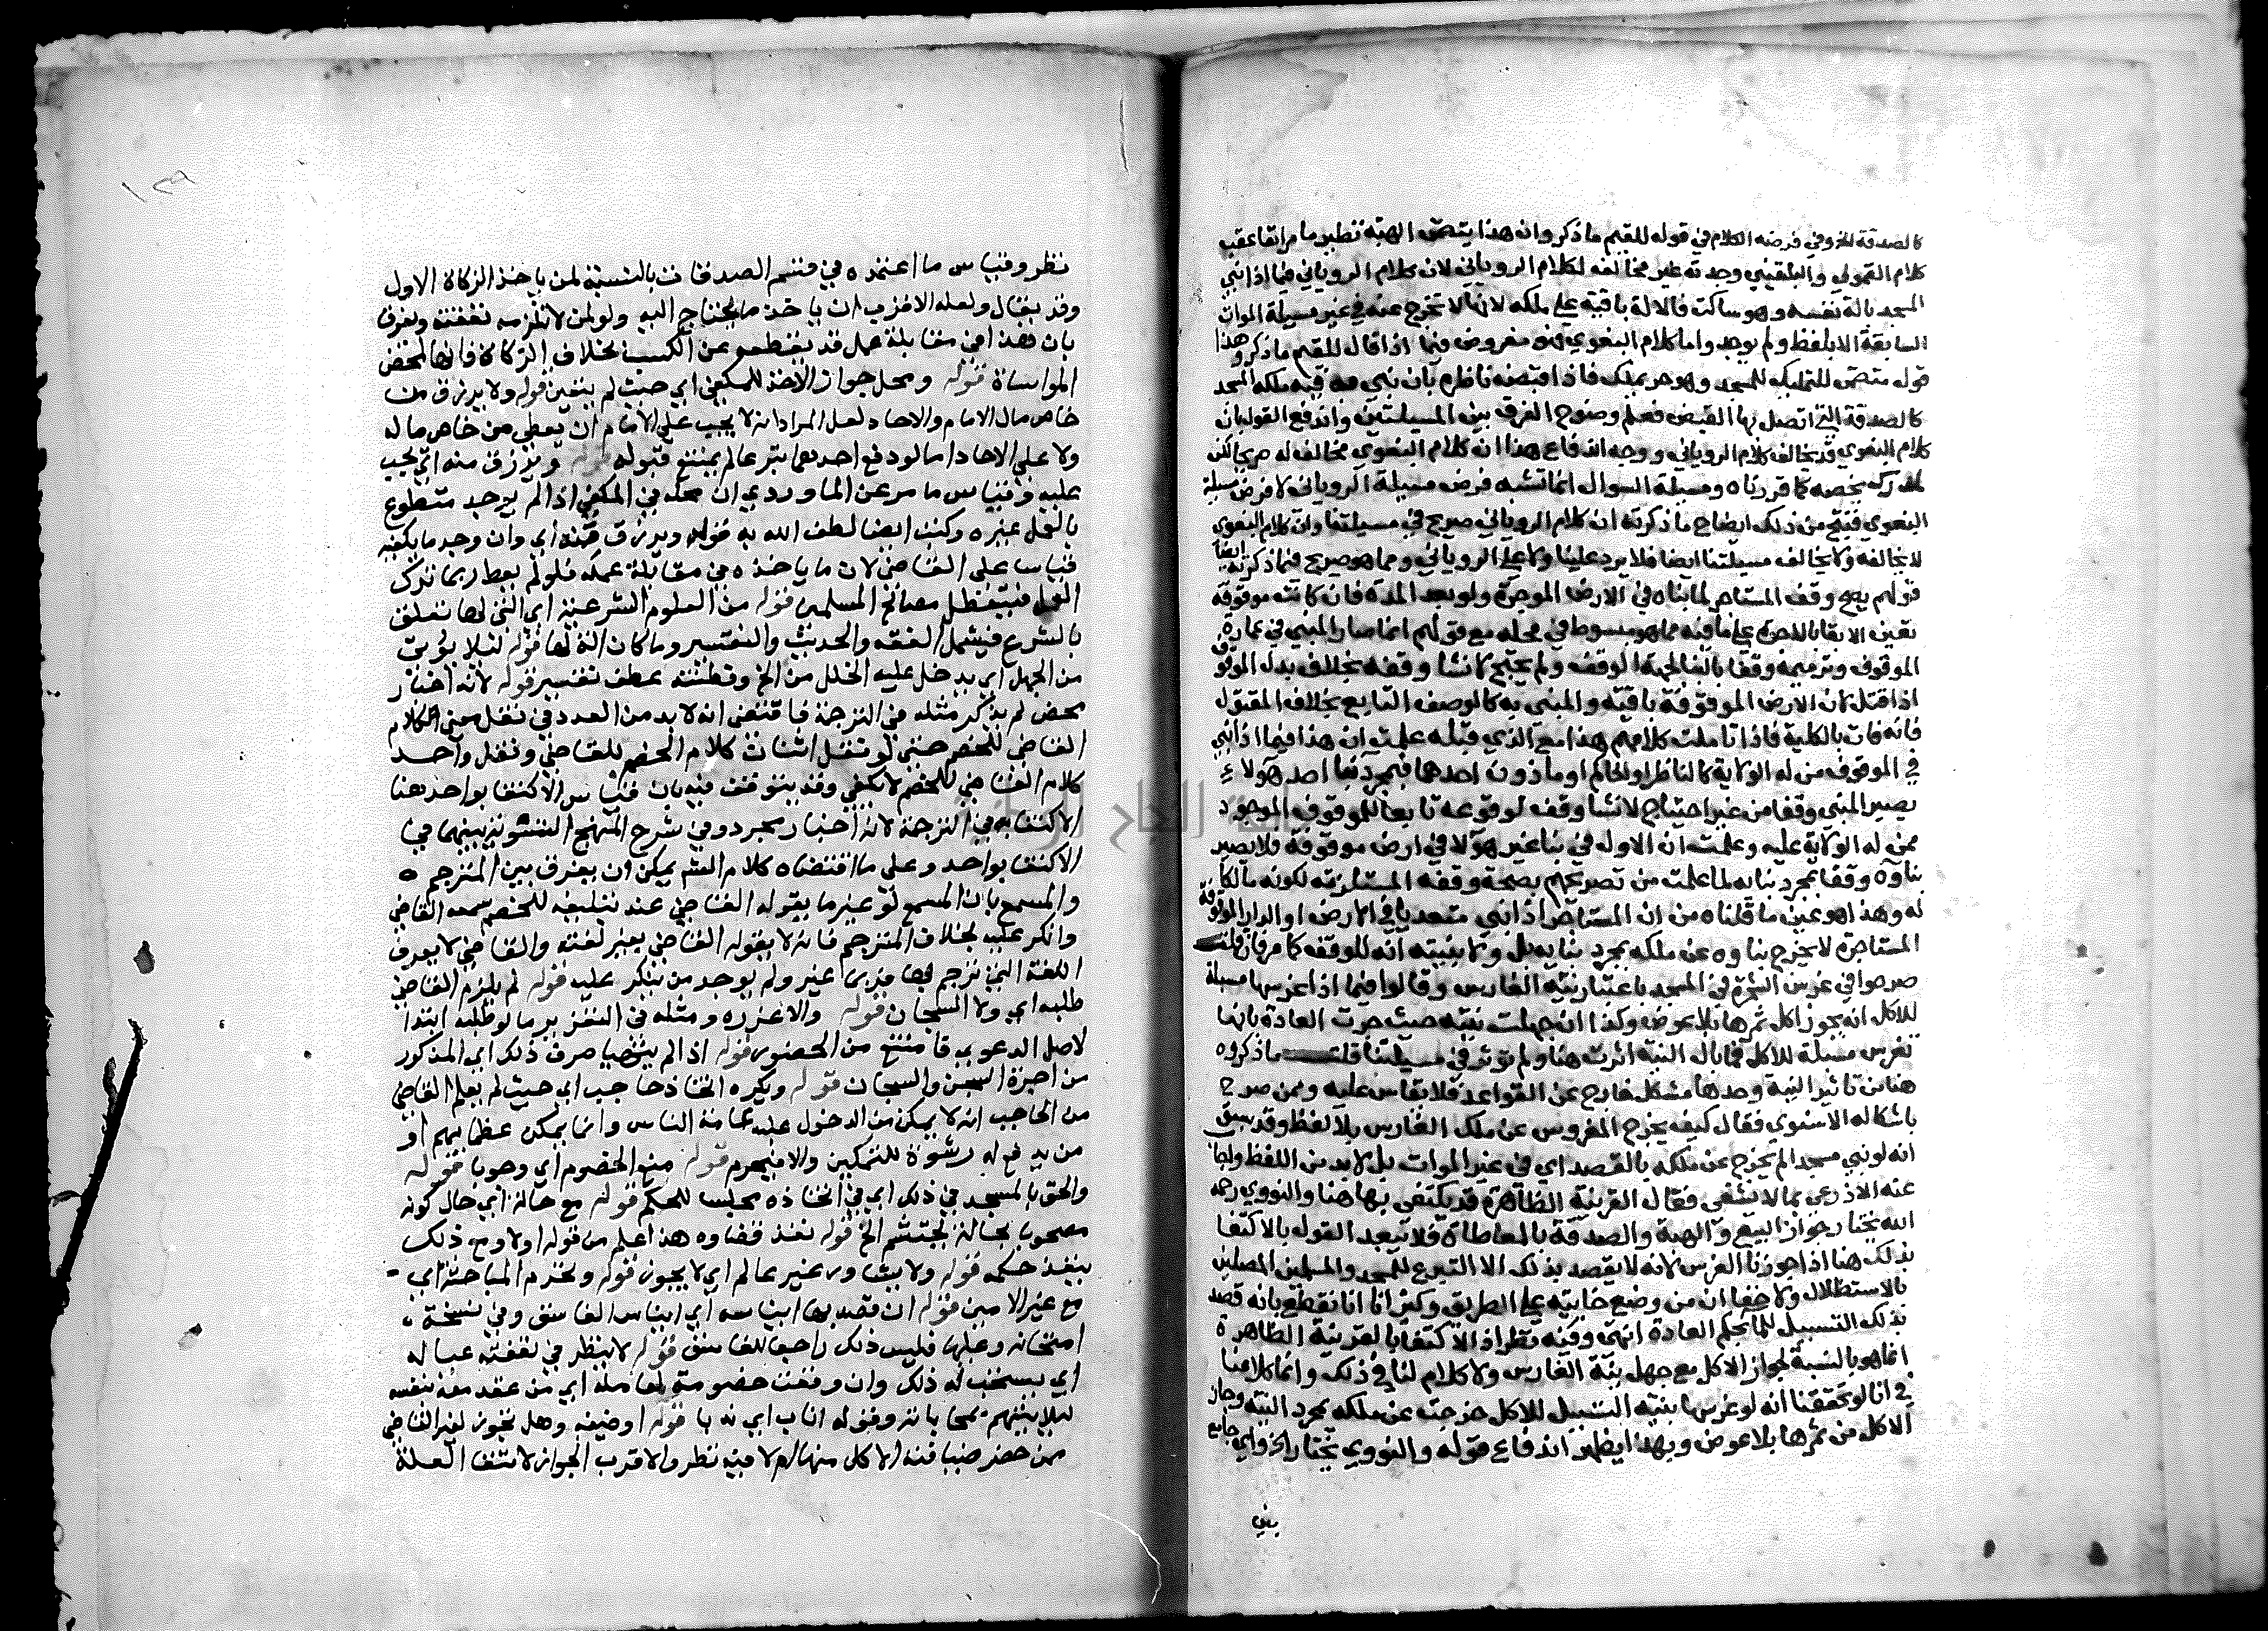 كالصدقة له وفي فرضه الكلام في قوله للقيم ما ذكر وان هذا يتضمن الهبة نظير ما مر انفا عقب
كلام القمولي والبلقيني وجدته غير مخالفه لكلام الروياني لان كلام الروياني فيما اذا بني
المسجد بالة نفسه وهو ساكت فالالة باقية علي ملكه لانها لا تخرج عنه في غير مسيلة الموات
السابقة الا بلفظ ولم يوجد واما كلام البغوي فهو مفروض فيما اذا قال للقيم ما ذكر وهذا
قوله متضمن للتمليك للمسجد وهو حر يملك فاذا قبضه ناظره بان بني به فيه ملكه المسجد
كالصدقة التي اتصل بها القبض فعلم وضوح الفرق بين المسيلتين واندفع القول بان
كلام البغوي قد يخالف كلام الروياني ووجه اندفاع هذا ان كلام البغوي مخالف له صريحا لكن
لمدرك يخصه كما قررناه ومسيلة السوال انما تشبه فرض مسيلة الروياني لا فرض مسيلة
البغوي فنتج من ذلك ايضاح ما ذكرته ان كلام الروياني صريح في مسيلتنا وان كلام البغوي
لا يخالفه ولا يخالف مسيلتنا ايضا فلا يرد علينا ولا علي الروياني ومما هو صريح فيما ذكرته ايضا
قولهم يصح وقف المستاجر لما بناه في الارض الموجرة ولو بعد المدة فان كانت موقوفة
تعين الابقا بالاجرة علي ما فيه مما هو مبسوط في محله مع قولهم انما صار المبني في عمارة
الموقوف وترميمه وقفا بالبنا لجهة الوقف ولم يحتج لانشا وقفه بخلاف بدل الموقوف
اذا قتل لان الارض الموقوفة باقية والمبني به كالوصف التابع بخلاف المقتول
فانه فات بالكلية فاذا تاملت كلامهم هذا مع الذي قبله علمت ان هذا فيما اذا بني
في الموقوف من له الولاية كالناظر او الحاكم او ماذون احدهما فبمجرد بنا احد هولاء
يصير المبني وقفا من غير احتياج لانشا وقف لوقوعه تابعا للموقوف الموجود
ممن له الولاية عليه وعلمت ان الاول في بنا غير هولا في ارض موقوفة فلا يصير
بناوه وقفا بمجرد بنايه لما علمت من تصريحهم بصحة وقفه المستلزمة لكونه مالكا
له وهذا هو عين ما قلناه من ان المستاجر اذا بني متعديا في الارض او الدار الموقوفة
المستاجرة لا يخرج بناوه عن ملكه بمجرد بنايه بل ولا بنيته انه للوقف كما مر فان قلت
صرحوا في غرس الشجرة في المسجد باعتبار نية الغارس وقالوا فيما اذا غرسها مسبلة
للاكل انه يجوز اكل ثمرها بلا عوض وكذا ان جهلت نيته حيث جرت العادة بانها
تغرس مسبلة للاكل فما بال النية اثرت هنا ولم توثر في مسيلتنا قلت ما ذكروه
هنا من تاثير النية وحدها مشكل خارج عن القواعد فلا يقاس عليه وممن صرح
باشكاله الاسنوي فقال كيف يخرج المغروس عن ملك الغارس بلا لفظ وقد سبق
انه لو بني مسجدا لم يخرج عن ملكه بالقصد اي في غير الموات بل لا بد من اللفظ واجاب
عنه الاذرعي بما لا يشفي فقال القرينة الظاهرة قد يكتفى بها هنا والنووي رحمه
الله يختار جواز البيع والهبة والصدقة بالمعاطاة فلا يبعد القول بالاكتفا
بذلك هنا اذا جوزنا الغرس لانه لا يقصد بذلك الا التبرع للمسجد والمسلمين المصلين
بالاستظلال ولا خفا ان من وضع خابية علي الطريق وكيزانا انا نقطع بانه قصد
بذلك التسبيل للما بحكم العادة انتهى وفيه نظر اذ الاكتفا بالقرينة الظاهرة
انما هو بالنسبة لجواز الاكل مع جهل بنية الغارس ولا كلام لنا في ذلك وانما كلامنا
في انا لو تحققنا انه لو غرسها بنية التسبيل للاكل خرجت عن ملكه بمجرد النية وجاز
الاكل من ثمرها بلا عوض وبهذا يظهر اندفاع قوله والنووي يختار الخ واي جامع
بين
نظر وقياس ما اعتمده في قسم الصدقات بالنسبة لمن ياخذ الزكاة الاول
وقد يقال ولعله الاقرب ان ياخذ ما يحتاج اليه ولو لمن لا تلزمه نفقته ويفرق
بان هذا في مقابلة عمل قد يقطعه عن الكسب بخلاف الزكاة فانها لمحض
المواساة قوله ومحل جواز الاخذ للمكفي اي حيث لم يتعين قوله ولا يرزق من
خاص مال الامام والاحاد لعل المراد انه لا يجب علي الامام ان يعطي من خاص ماله
ولا علي الاحاد اما لو دفع احدهما تبرعا لم يمتنع قبوله قوله ويرزق منه اي يجب
عليه وقياس ما مر عن الماوردي ان محله في المكفي اذا لم يوجد متطوع
بالعمل غيره وكتب ايضا لطف الله به قوله ويرزق منه اي وان وجد ما يكفيه
قياسا علي القاضي لان ما ياخذه في مقابلة عمله فلو لم يعط ربما ترك
العمل فتتعطل مصالح المسلمين قوله من العلوم الشرعية اي التي لها تعلق
بالشرع فيشمل الفقه والحديث والتفسير وما كان الة لها قوله ليلا يؤتى
من الجهل اي يدخل عليه الخلل من الخ وفطنته عطف تفسير قوله لانه اخبار
محض لم يذكر مثله في الترجمة فاقتضى انه لا بد من العدد في نقل معنى كلام
القاضي للخصم حتى لو نقل اثنان كلام الخصم للقاضي ونقل واحد
كلام القاضي للخصم لا يكفي وقد يتوقف فيه بان قياس الاكتفا بواحد هنا
الاكتفا به في الترجمة لانه اخبار مجرد وفي شرح المنهج التسوية بينهما في
الاكتفا بواحد وعلى ما اقتضاه كلام الشم يمكن ان يفرق بين المترجم
والمسمع بان المسمع لو غير ما يقوله القاضي عند تبليغه للخصم سمعه القاضي
وانكر عليه بخلاف المترجم فانه لا يقوله القاضي بغير لغته والقاضي لا يعرف
اللغة التي ترجم بها فربما غير ولم يوجد من ينكر عليه قوله لم يلزم القاضي
طلبه اي ولا السجان قوله والاعزره ومثله في التعزير ما لو طلبه ابتدا
لاصل الدعوى فامتنع من الحضور قوله اذا لم يتهيا صرف ذلك اي المذكور
من اجرة السجن والسجان قوله ويكره اتخاذ حاجب اي حيث لم يعلم القاضي
من الحاجب انه لا يمكن من الدخول عليه عامة الناس وانما يمكن عظماءهم او
من يدفع له رشوة للتمكين والا فيحرم قوله منع الخصوم اي وجوبا قوله
والحق بالمسجد في ذلك اي في اتخاذه مجلسا للحكم قوله مع حالة اي حال كونه
مصحوبا بحالة يحتشم الخ قوله نفذ قضاوه هذا علم من قوله اولا ومع ذلك
ينفذ حكمه قوله ولا يشاور غير عالم اي لا يجوز قوله وتحرم المباحثة اي
مع غير الامين قوله ان قصد بها ايناسه اي ايناس الفاسق وفي نسخة
امتحانه وعليها فليس ذلك راجعا للفاسق قوله لا ينظر في نفقته عياله
اي يستحب له ذلك وان وقعت خصومة لمعامله اي من عقد معه بنفسه
ليلا يتهم بمحاباته وقوله اناب اي ندبا قوله او ضيفه وهل يجوز لغير القاضي
ممن حضر ضيافته الاكل منها ام لا فيه نظر والاقرب الجواز لانتفا العلة